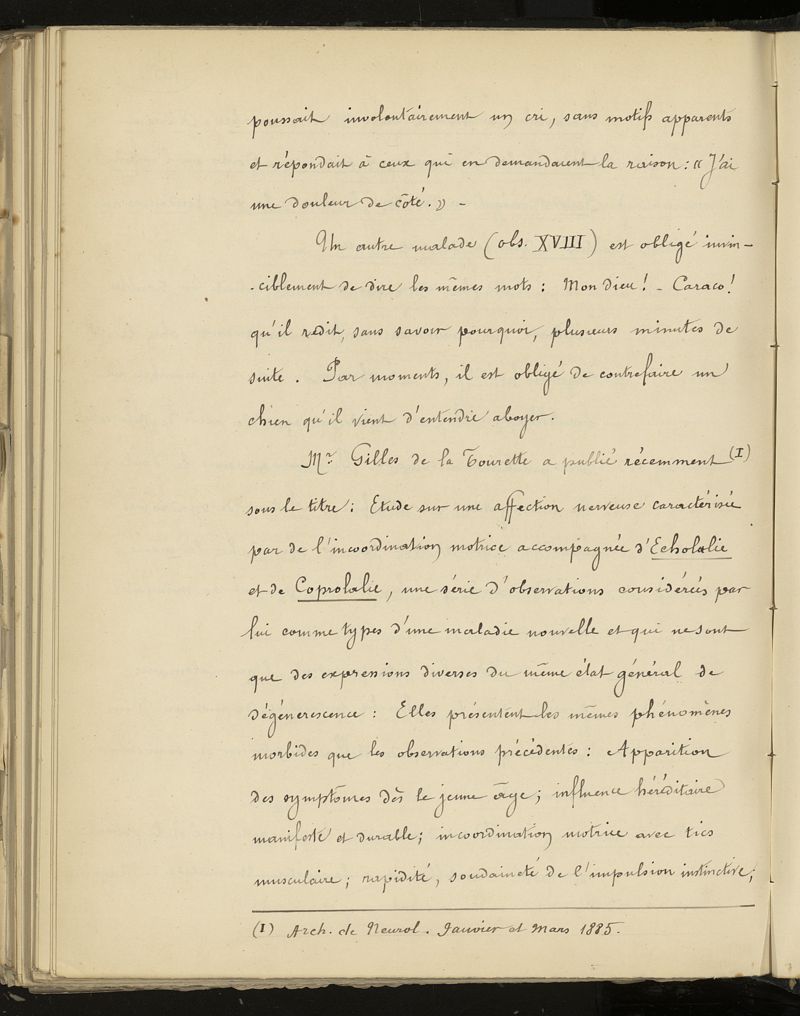 poussait involontairement un cri, sans motifs apparents
et répondait à ceux qui en demandaient la raison : « J'ai
une douleur de côté. » -
Un autre malade (obs. XVIII) est obligé invin-
-ciblement de dire les mêmes mots : Mon Dieu ! - Caraco !
qu'il redit, sans savoir pourquoi, plusieurs minutes de
suite. Par moments, il est obligé de contrefaire un
chien qu'il vient d'entendre aboyer.
Mr. Gilles de la Tourette a publié récemment (I)
sous le titre : Etude sur une affection nerveuse caractérisée
par de l'incoordination motrice accompagnée d'Echolalie
et de Coprolalie, une série d'observations considérées par
lui comme types d'une maladie nouvelle et qui ne sont
que des expressions diverses du même état général de
dégénerescence : Elles présentent les mêmes phénomènes
morbides que les observations précédentes : Apparition
des symptômes dès le jeune âge ; influence héréditaire
manifeste et durable ; incoordination motrice avec tics
musculaire ; rapidité, soudaineté de l'impulsion instinctive ;
(I) Arch. de Neurol. Janvier et Mars 1885.